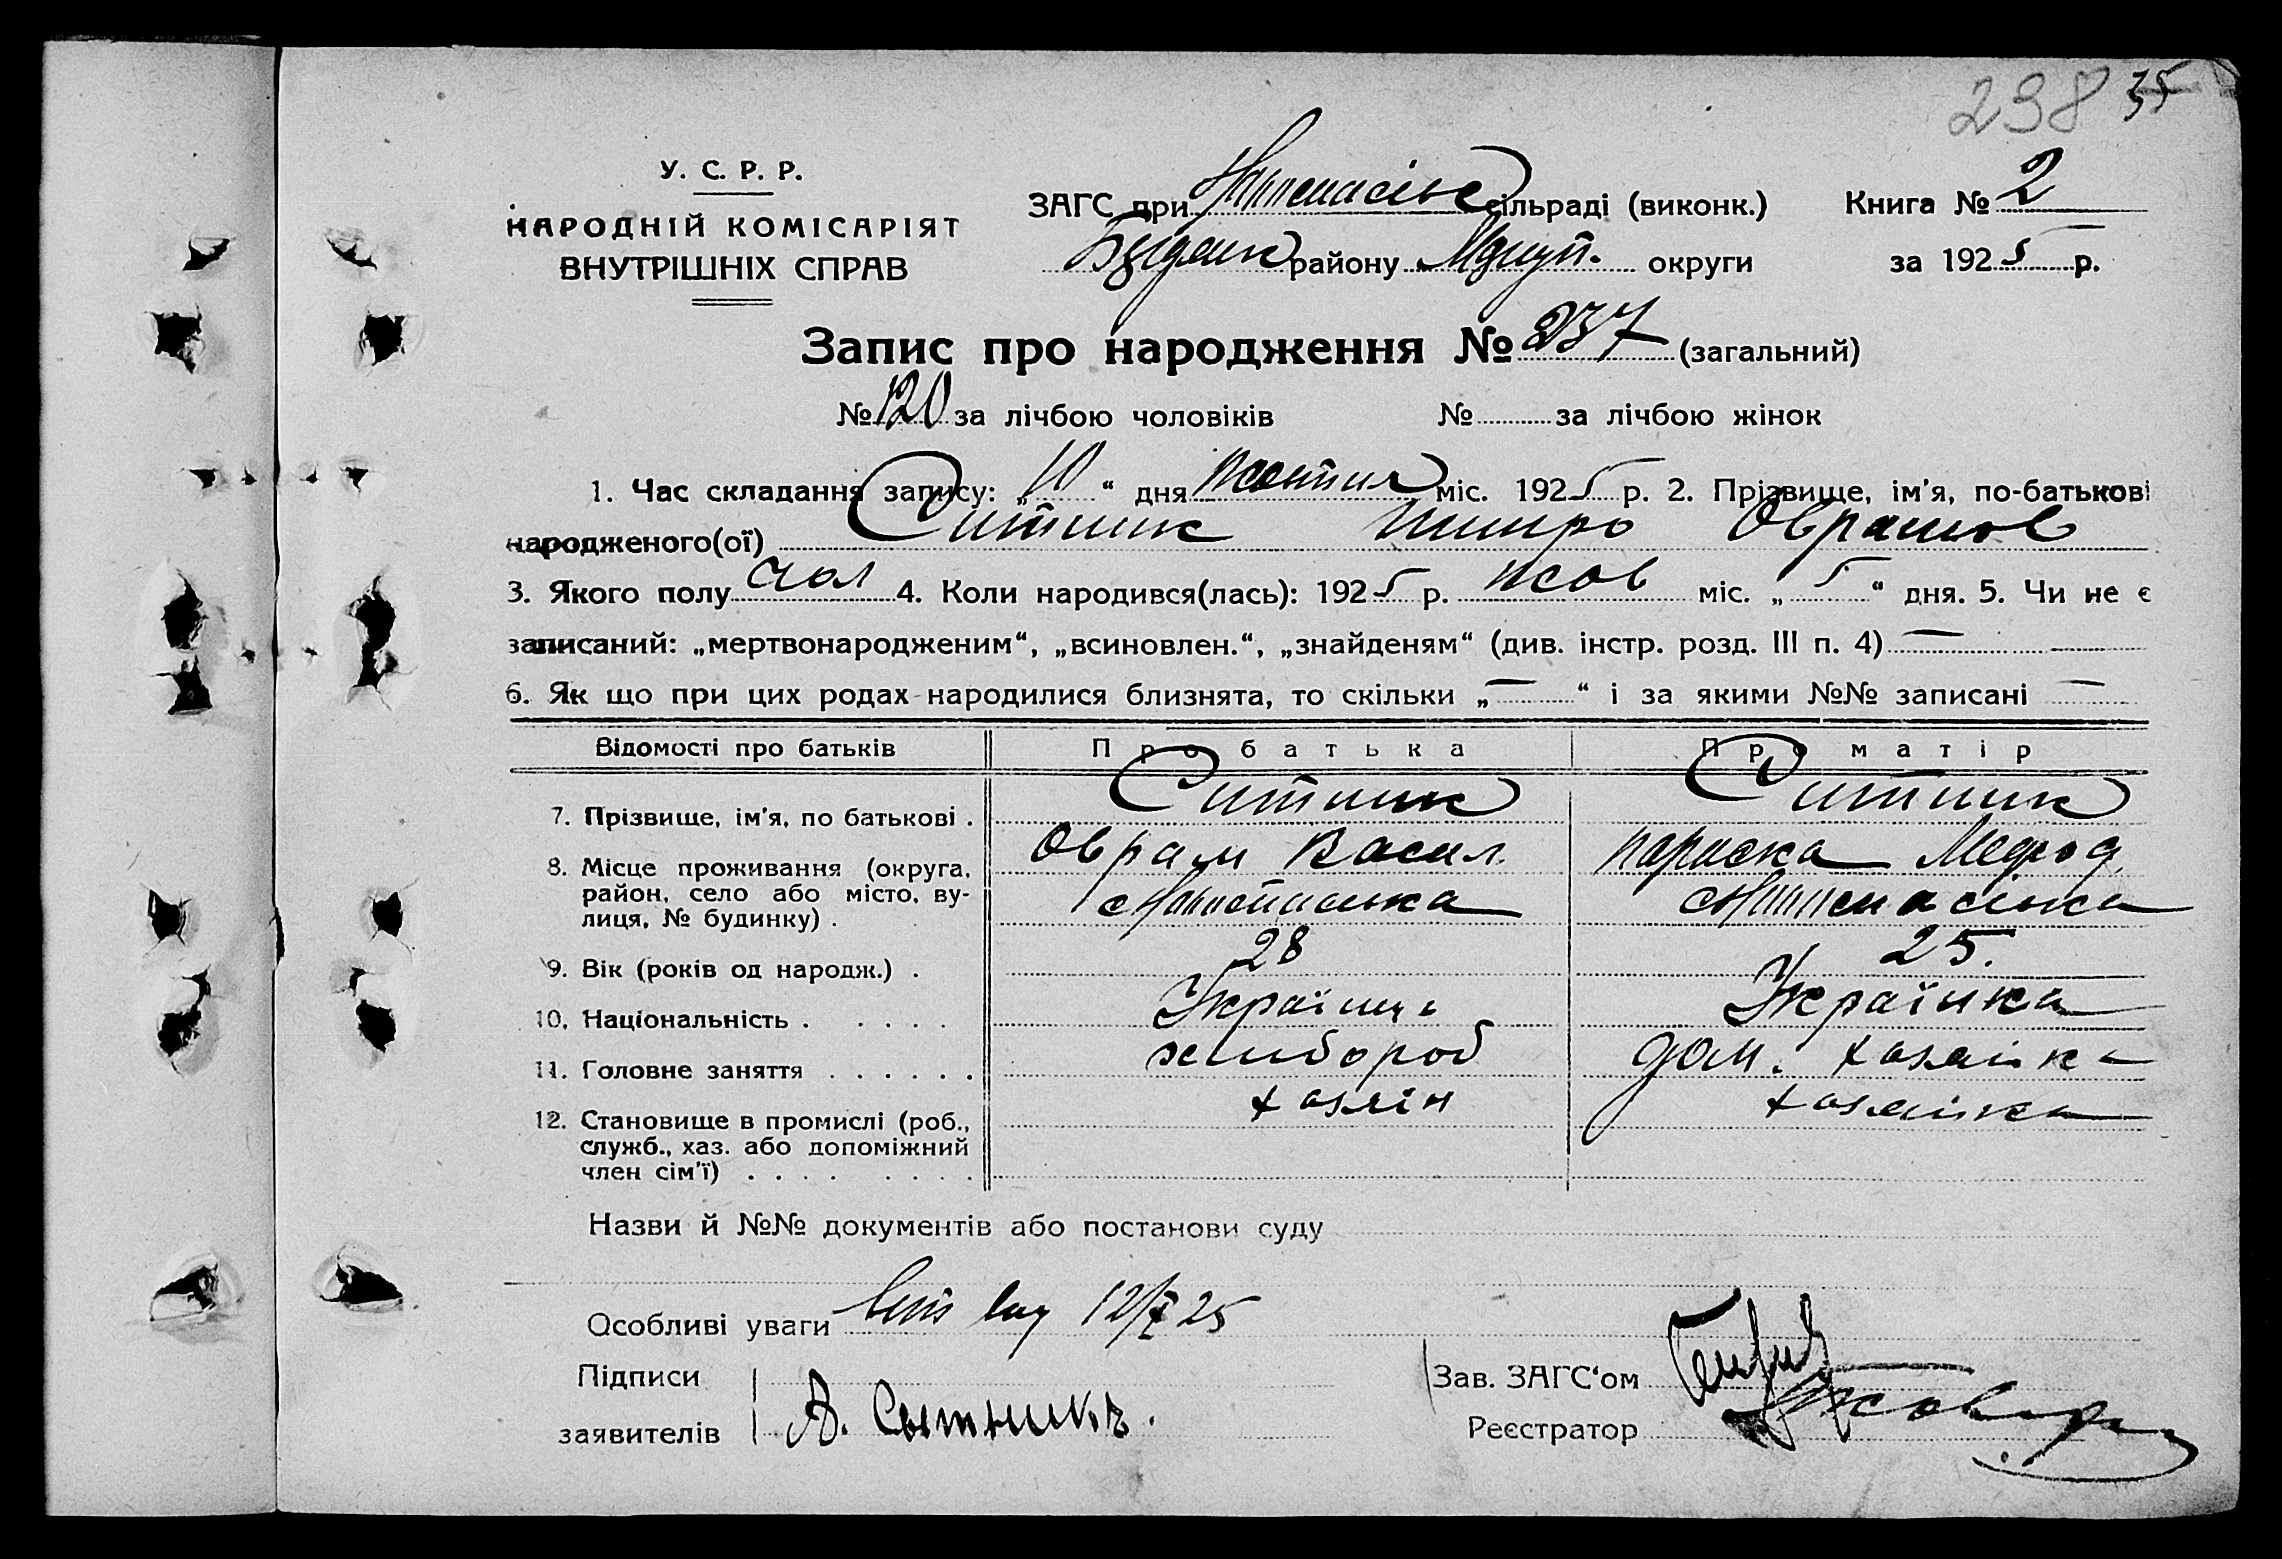 238 35
У. С. Р. Р.
НАРОДНІЙ КОМІСАРІЯТ
ВНУТРІШНІХ СПРАВ
ЗАГС при сільраді (виконк.) Книга № 2
району округи за 1925 р.
Запис про народження № 237 (загальний)
№ 120 за лічбою чоловіків № за лічбою жінок
1. Час складання запису: „ 10 “ дня жовтня міс. 1925 р. 2. Прізвище, ім'я, по-батькові
народженого(ої) Ситник Оврамов
3. Якого полу чол 4. Коли народився(лась): 1925 р. жов міс. „ 5 “ дня. 5. Чи не є
записаний: „мертвонародженим“, „всиновлен.“, „знайденям“ (див. інстр. розд. III п. 4) —
6. Як що при цих родах народилися близнята, то скільки „ — “ і за якими №№ записані —
Відомості про батьків Про батька Про матір
7. Прізвище, ім'я, по батькові . Ситник Ситник
Оврам Васил. Параска Мефод.
8. Місце проживання (округа, район, село або місто, вулиця, № будинку) .
9. Вік (років од народж.) . 28 25.
10. Національність . . . . . Українець Українка
11. Головне заняття . . . . . . хлібороб дом. хазяйка
12. Становище в промислі (роб., служб., хаз. або допоміжний член сім'ї) . . . . . . . . хазяїн хазяйка
Назви й №№ документів або постанови суду
Особливі уваги 12/X 25
Підписи заявителів А. Сытникъ.
Зав. ЗАГС'ом
Реєстратор